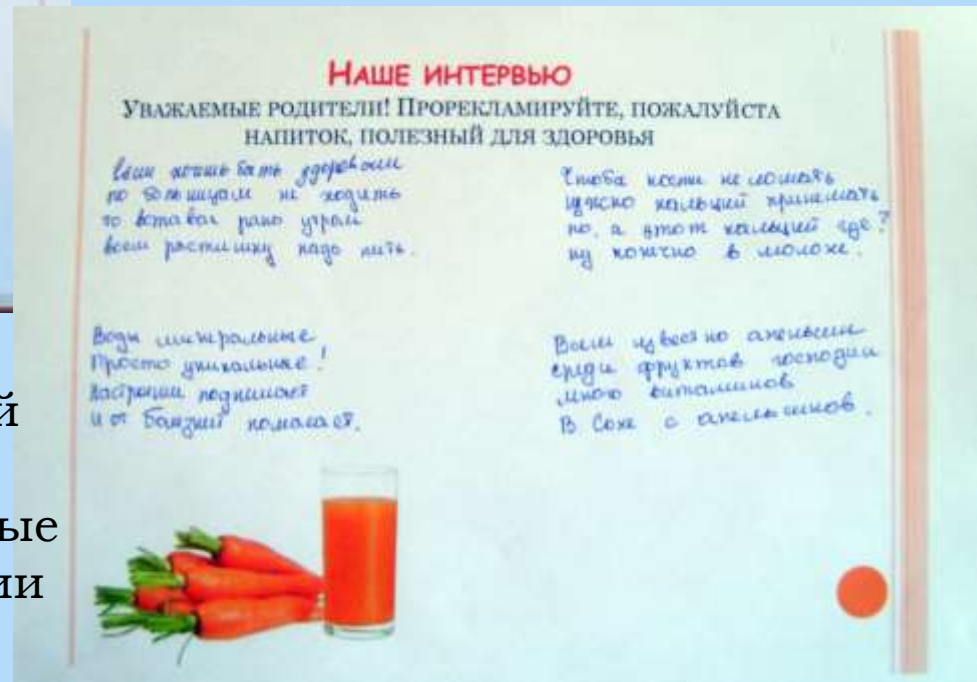 НАШЕ ИНТЕРВЬЮ
УВАЖАЕМЫЕ РОДИТЕЛИ! ПРОРЕКЛАМИРУЙТЕ, ПОЖАЛУЙСТА
НАПИТОК, ПОЛЕЗНЫЙ ДЛЯ ЗДОРОВЬЯ
быть здоровым
по больницам не ходить
то вставая рано утром
всем растишку надо пить.
Чтоба кости не ломать
нужно кальций принимать
но, а этот кальций где?
ну конечно в молоке.
Воды минеральные
Просто уникальные!
поднимает
и от помагает.
Всем известно апельсин
среди фруктов господин
много витаминов
В Соке с апельсинов.
й
ые
ии